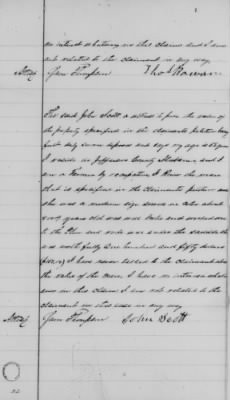 no interest whatever in this claim and I am
not related to the claimant in any way
Attest Thos Rowan
Sam Thompson
The said John Scott a witness to prove the value of
the property specified in the claimants petition being
first duly sworn deposes and says my age is
I reside in Jefferson County Alabama and I
am a Farmer by occupation I know the mare
that is specified in the claimants petition
she was a medium size mare about
years old was well broke and
to the Plow and and the
was worth fully One hundred and fifty dollars
I have never talked to the claimant about
the value of the mare, I have no interest what
ever in this claim I am not related to the
claimant in this case in any way
Attest John Scott
Sam Thompson